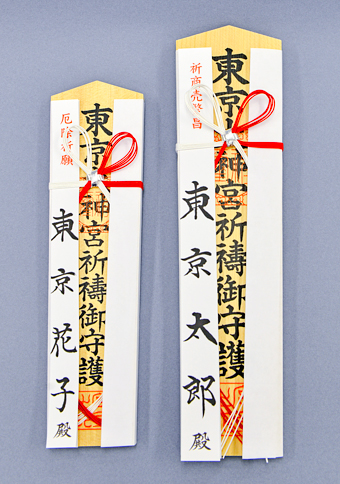 東京大神宮祈禱御守護
祈商売繁昌
東京太郎殿
東京大神宮祈禱御守護
厄除祈願
東京花子殿